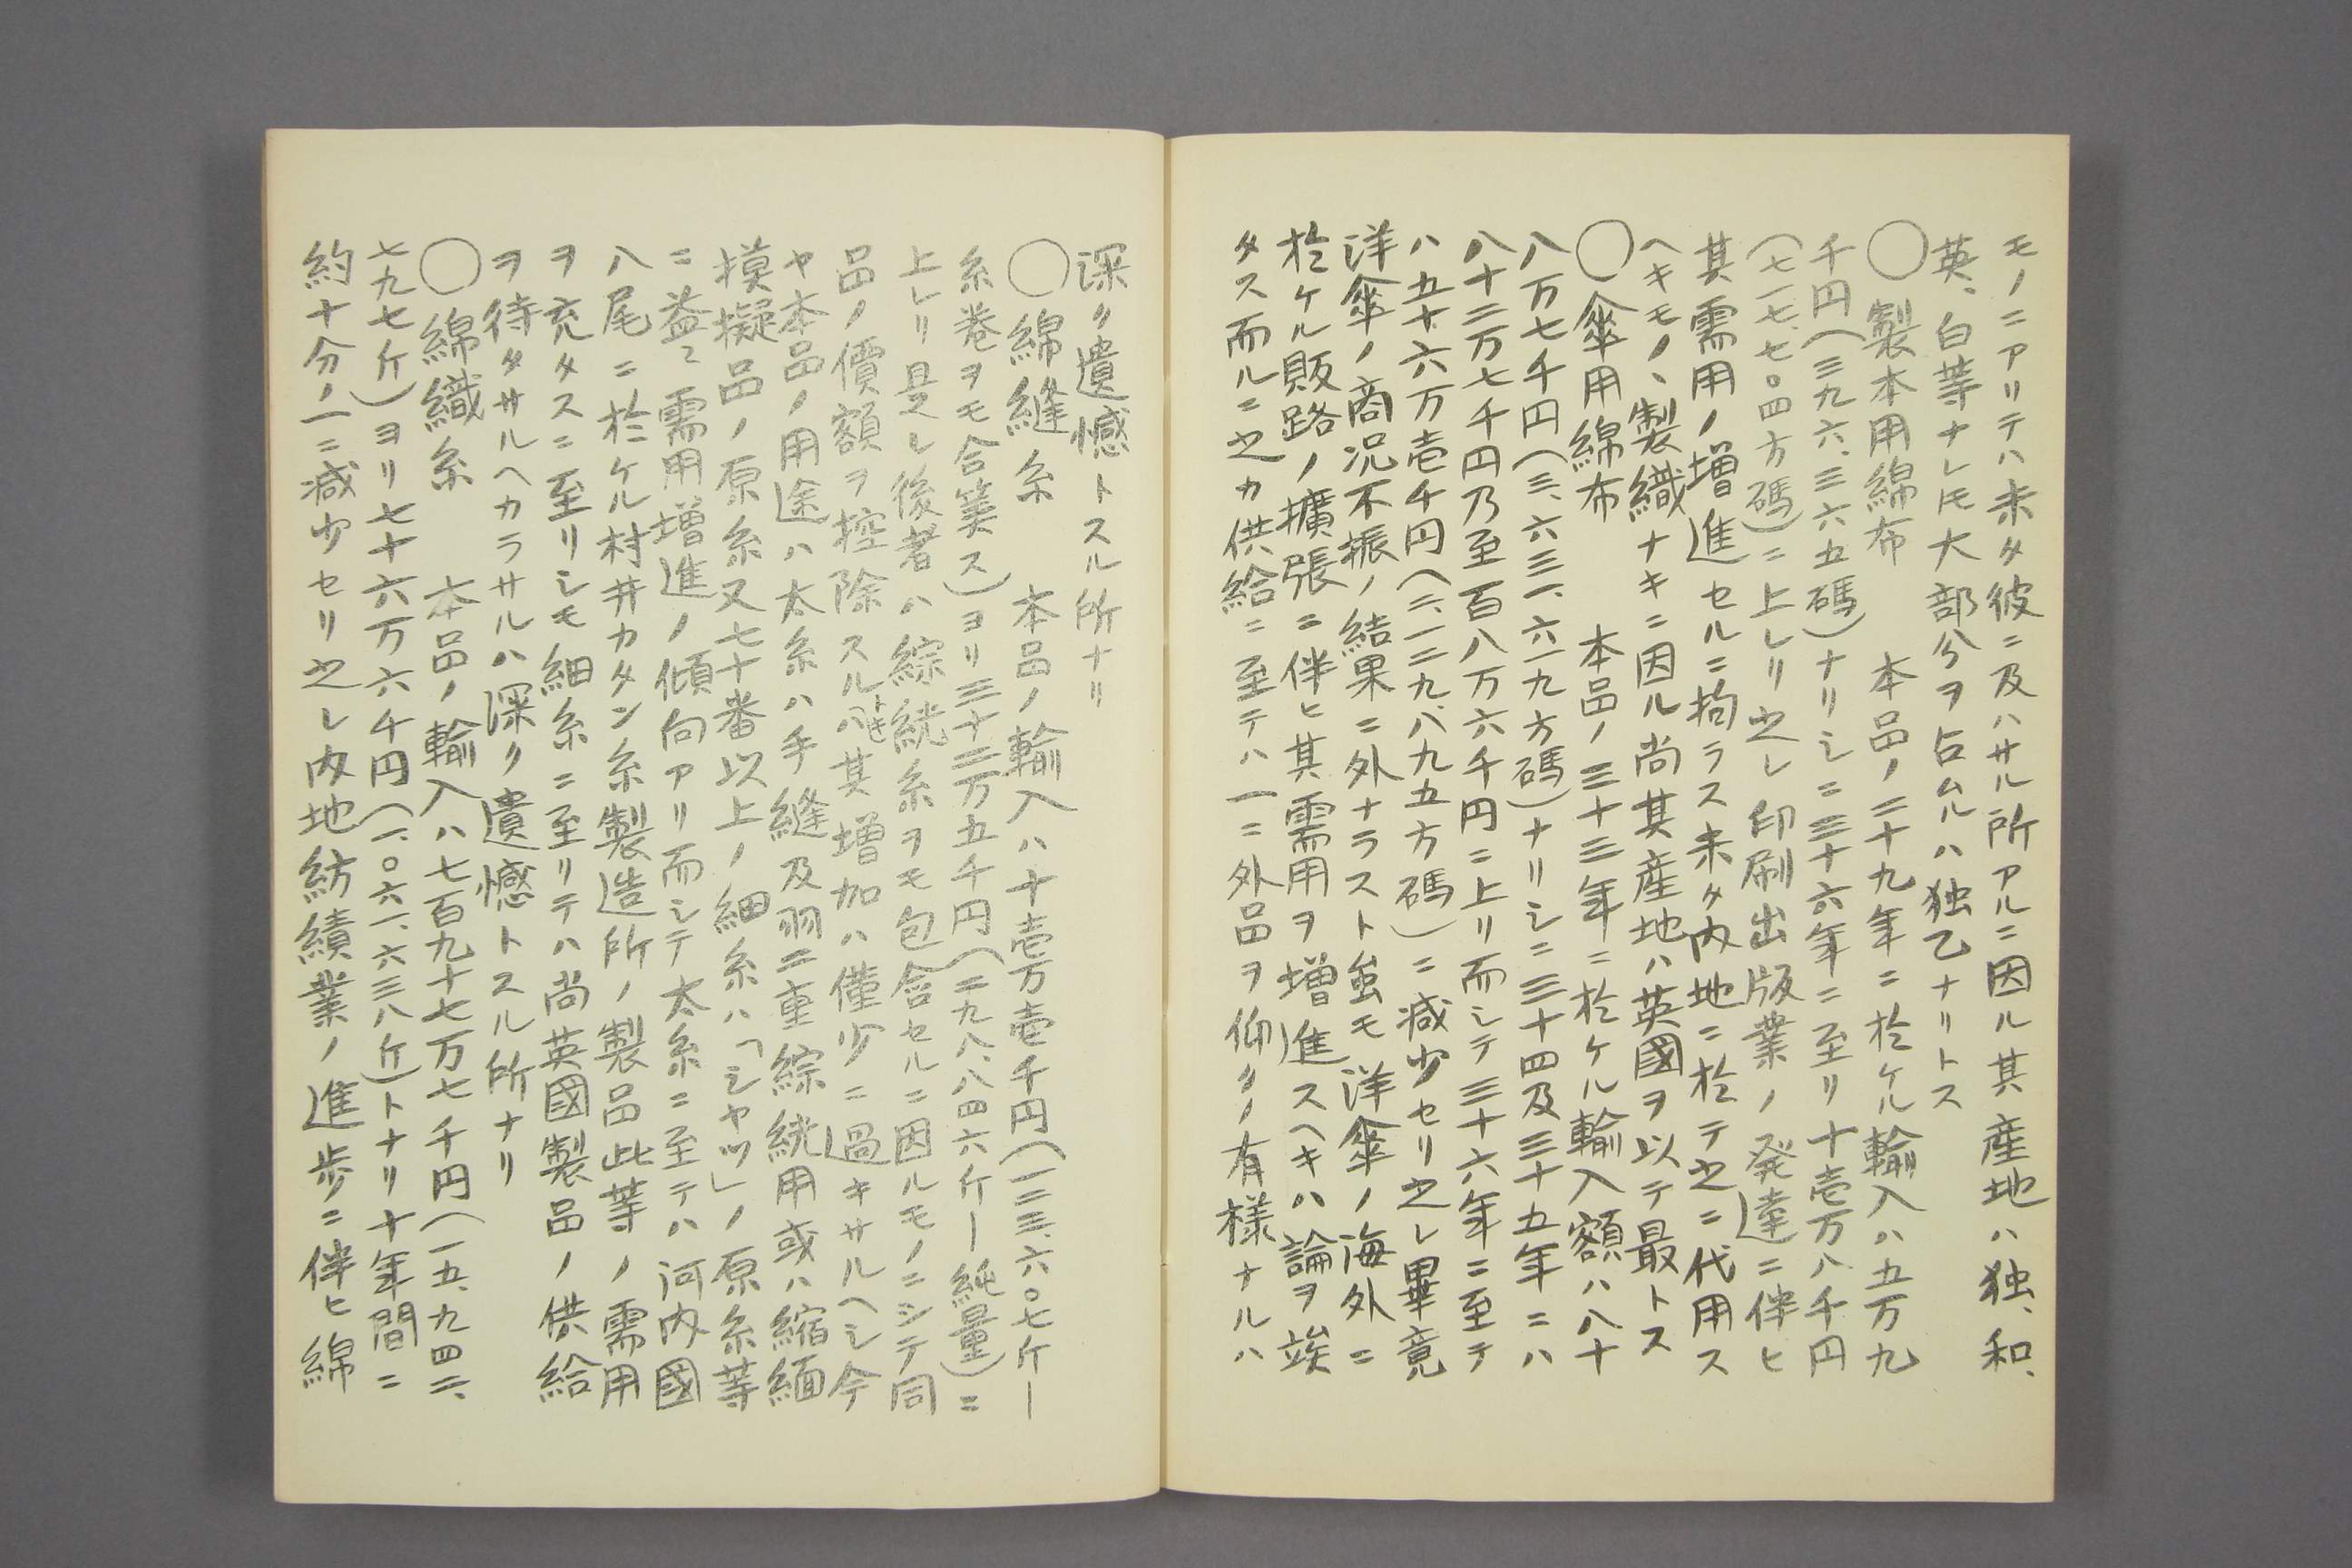 モノニアリテハ未タ彼ニ及ハサル所アルニ因ル其産地ハ独、和、
英、白等ナレ𪜈大部分ヲ占ムルハ独乙ナリトス
〇製本用綿布　本品ノ二十九年ニ於ケル輸入ハ五万九
千円(三九六、三六五碼)ナリシニ三十六年ニ至リ十壱万八千円
(七一七、七〇四方碼)ニ上レリ之レ印刷出版業ノ発達ニ伴ヒ
其需用ノ増進セルニ拘ラス未タ内地ニ於テ之ニ代用ス
ヘキモノヽ製織ナキニ因ル尚其産地ハ英國ヲ以テ最トス
〇傘用綿布　本品ノ三十三年ニ於ケル輸入額ハ八十
八万七千円(三、六三一、六一九方碼)ナリシニ三十四及三十五年ニハ
八十二万七千円乃至百八万六千円ニ上リ而シテ三十六年ニ至テ
ハ五十六万壱千円(二、一二九、八九五方碼)ニ減少セリ之レ畢竟
洋傘ノ商况不振ノ結果ニ外ナラスト虽モ洋傘ノ海外ニ
於ケル販路ノ擴張ニ伴ヒ其需用ヲ増進スヘキハ論ヲ竢
タス而ルニ之カ供給ニ至テハ一ニ外品ヲ仰クノ有様ナルハ
深ク遺憾トスル所ナリ
〇綿縫糸　本品ノ輸入ハ十壱万壱千円(一二三、六〇七斤―
糸巻ヲモ合筭ス)ヨリ三十二万五千円(二九八、八四六斤―純量)ニ
上レリ是レ後者ハ綜絖糸ヲモ包含セルニ因ルモノニシテ同
品ノ價額ヲ控除スルトキハ其増加ハ僅少ニ過キサルヘシ今
ヤ本品ノ用途ハ太糸ハ手縫及羽二重綜絖用或ハ縮緬
摸擬品ノ原糸又七十番以上ノ細糸ハ「シヤツ」ノ原糸等
ニ益々需用増進ノ傾向アリ而シテ太糸ニ至テハ河内國
八尾ニ於ケル村井カタン糸製造所ノ製品此等ノ需用
ヲ充タスニ至リシモ細糸ニ至リテハ尚英國製品ノ供給
ヲ待タサルヘカラサルハ深ク遺憾トスル所ナリ
〇綿織糸　本品ノ輸入ハ七百九十七万七千円(一五、九四二、
七九七斤)ヨリ七十六万六千円(一、〇六一、六三八斤)トナリ十年間ニ
約十分ノ一ニ減少セリ之レ内地紡績業ノ進歩ニ伴ヒ綿